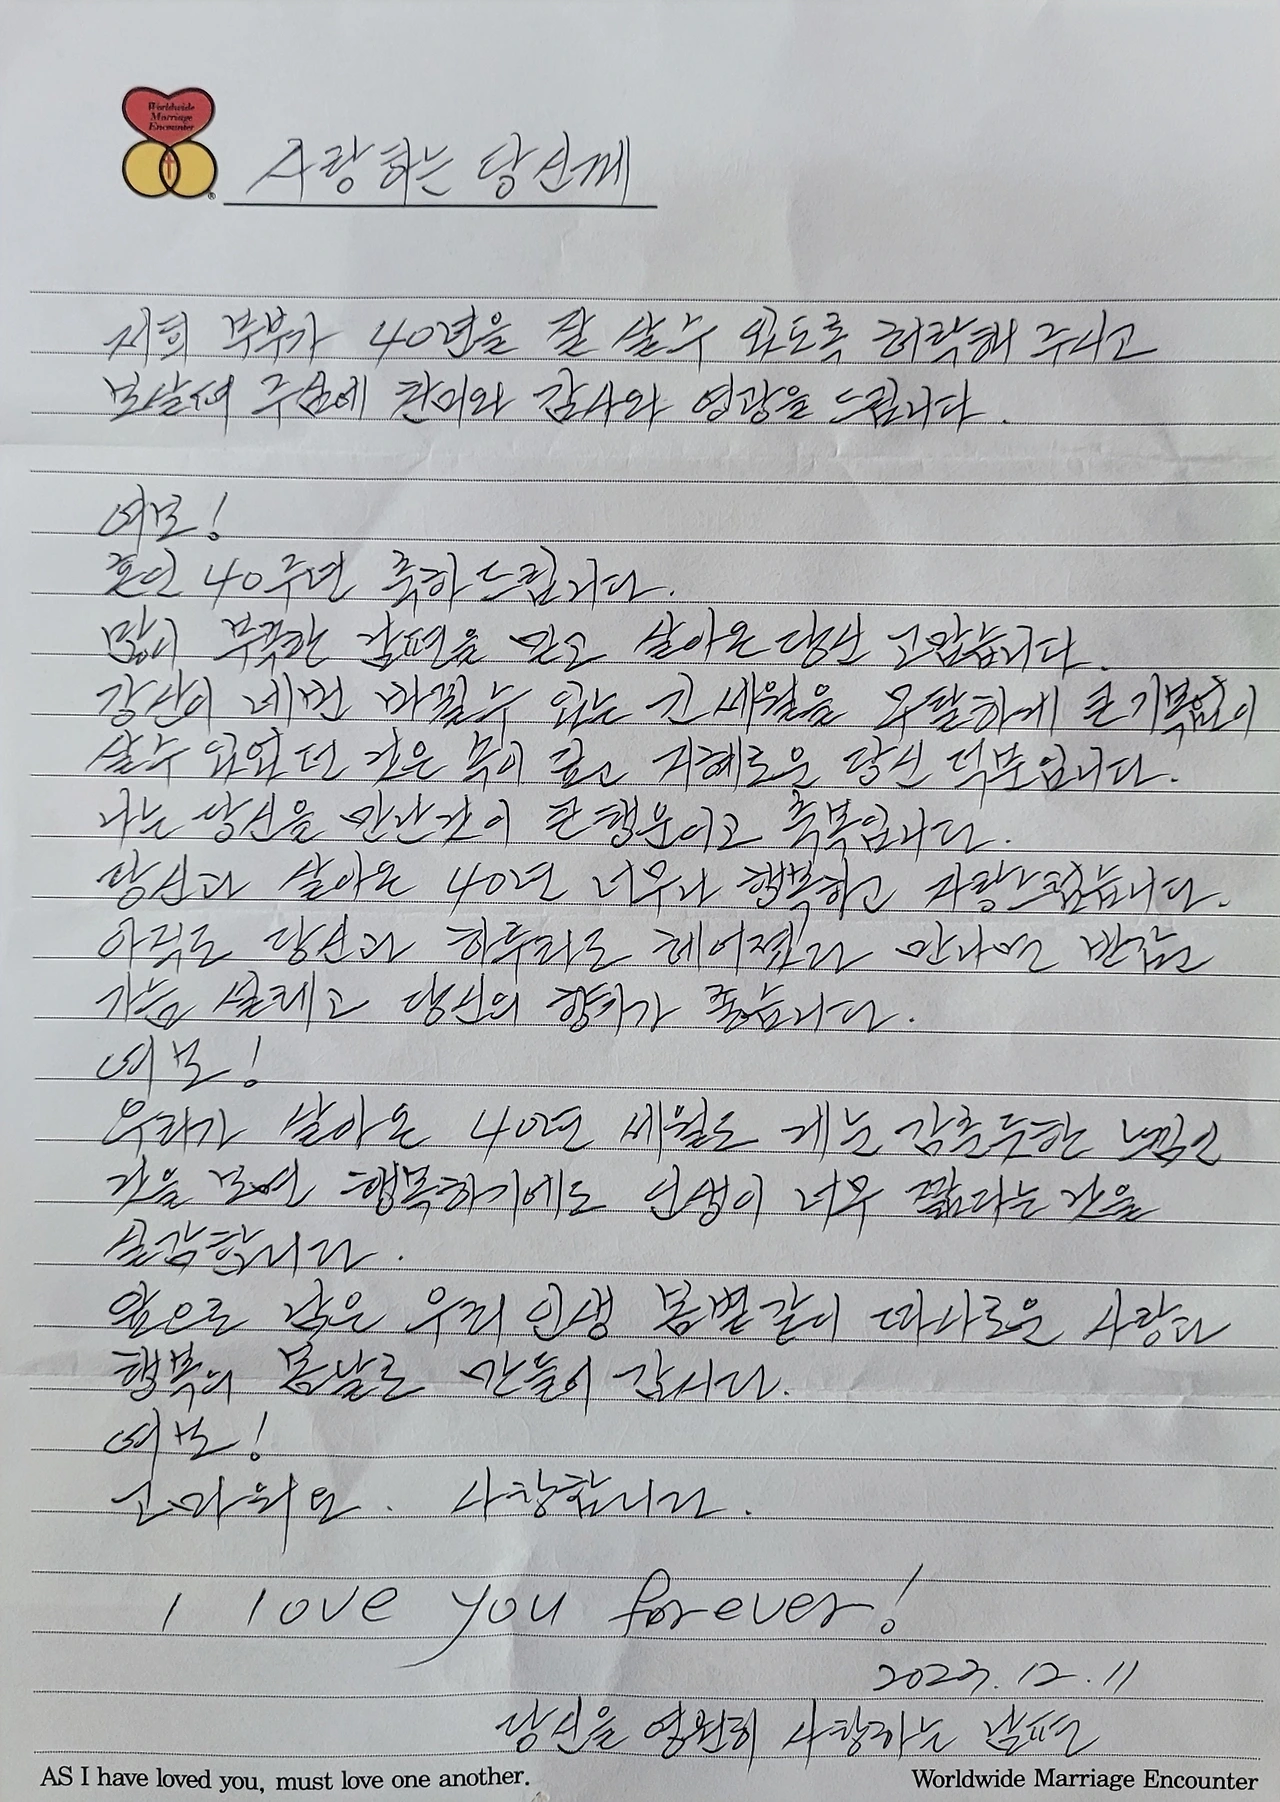 Worldwide
Marriage
Encounter
사랑하는 당신께
저희 부부가 40년을 잘 살 수 있도록 허락해 주시고
보살펴 주심에 찬미와 감사와 영광을 드립니다.
여보!
혼인 40주년 축하 드립니다.
많이 부족한 남편을 믿고 살아온 당신 고맙습니다.
강산이 네번 바뀔 수 있는 긴 세월을 무탈하게 큰 기복없이
살 수 있었던 것은 속이 깊고 지혜로운 당신 덕분입니다.
나는 당신을 만난것이 큰 행운이고 축복입니다.
당신과 살아온 40년 너무나 행복하고 자랑스럽습니다.
아직도 당신과 하루라도 헤어졌다 만나면 반갑고
가슴 설레고 당신의 향기가 좋습니다.
여보!
우리가 살아온 40년 세월도 게눈 감춘듯한 느낌인
것을 보면 행복하기에도 인생이 너무 짧다는 것을
실감합니다.
앞으로 남은 우리 인생 봄볕같이 따사로운 사랑과
행복의 봄날로 만들어 갑시다.
여보!
고마워요. 사랑합니다.
I love you forever!
2023.12.11
당신을 영원히 사랑하는 남편
AS I have loved you, must love one another.
Worldwide Marriage Encounter